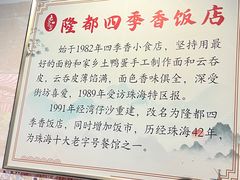 隆都四季香饭店
始于1982年四季香小食店，坚持用最
好的面粉和家乡土鸭蛋手工制作面和云吞
皮，云吞皮薄馅满，面色香味俱全，深受
街坊喜爱，1989年受访珠海特区报。
1991年经湾仔沙重建，改名为隆都四
季香饭店，同时增加饭市，历经珠海42年，
为珠海十大老字号餐馆之一。